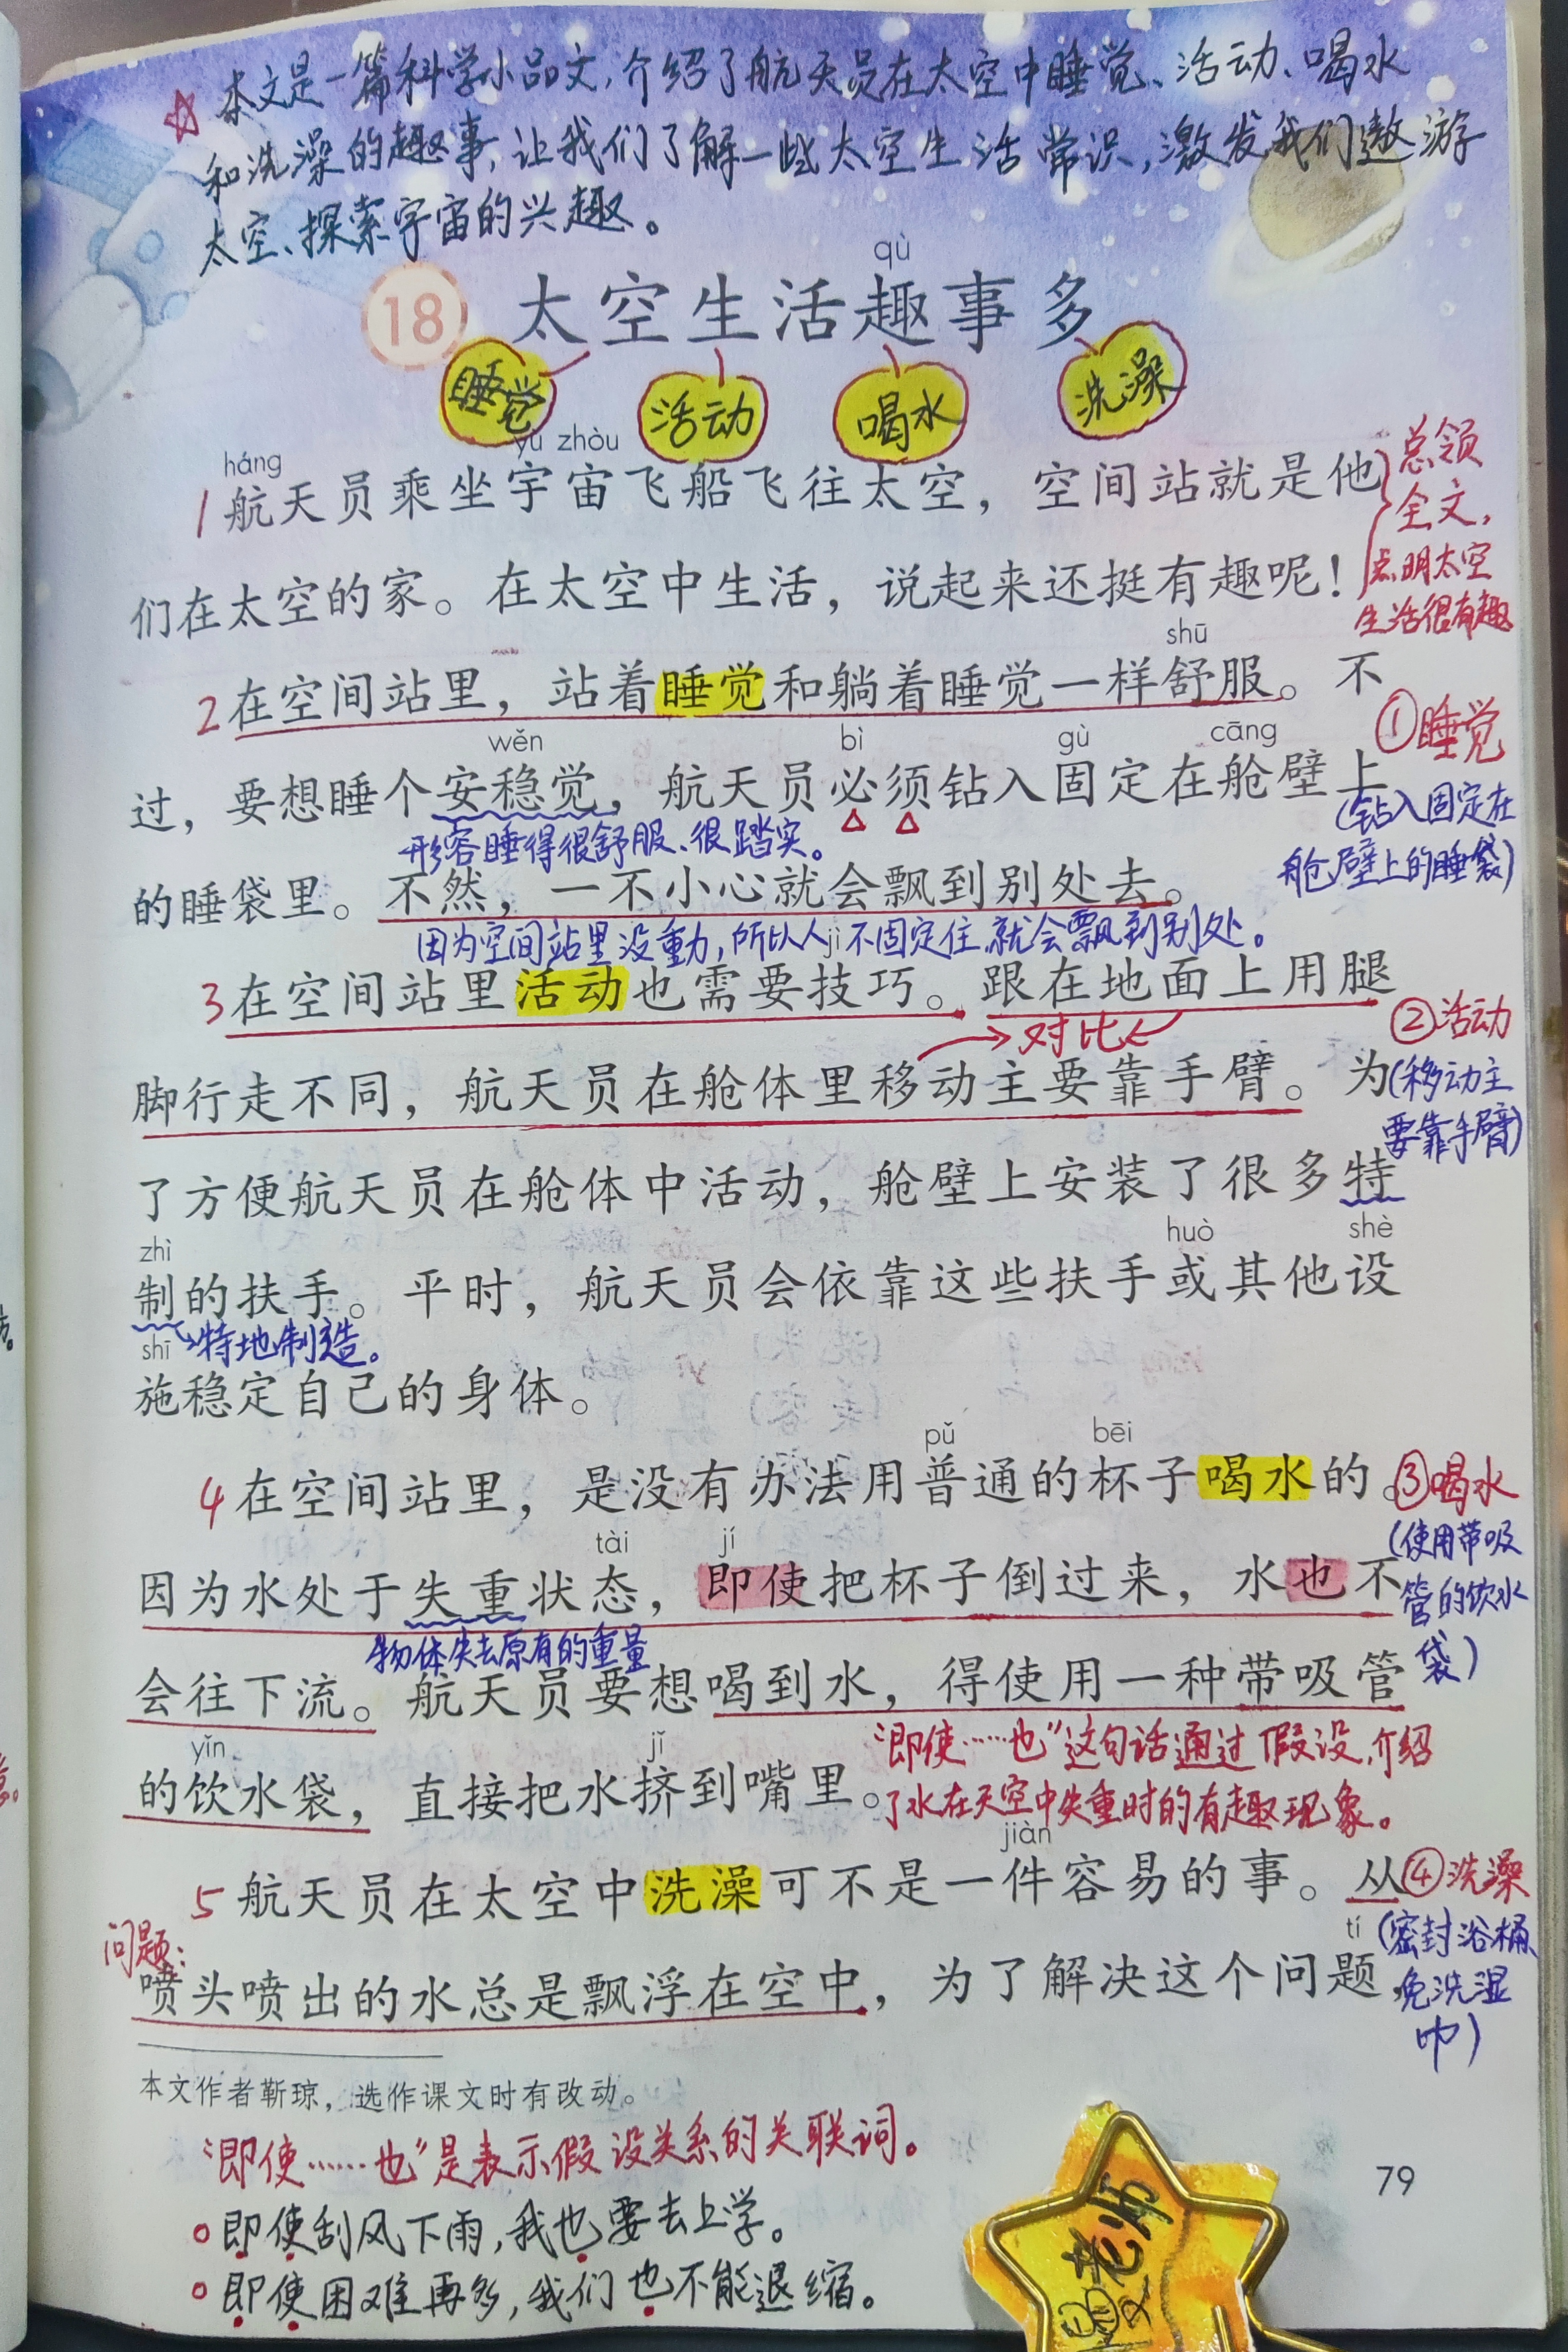 ☆ 本文是一篇科学小品文,介绍了航天员在太空中睡觉、活动、喝水
和洗澡的趣事,让我们了解一些太空生活常识,激发我们遨游
太空、探索宇宙的兴趣。
qù
18 太空生活趣事多
睡觉 活动 喝水 洗澡
háng yǔ zhòu
1 航天员乘坐宇宙飞船飞往太空，空间站就是他
们在太空的家。在太空中生活，说起来还挺有趣呢！
总领
全文,
点明太空
生活很有趣
shū
2 在空间站里，站着睡觉和躺着睡觉一样舒服。不
①睡觉
wěn bì gù cāng
过，要想睡个安稳觉，航天员必须钻入固定在舱壁上
(钻入固定在
舱壁上的睡袋)
形容睡得很舒服、很踏实。
的睡袋里。不然，一不小心就会飘到别处去。
因为空间站里没重力,所以人不固定住,就会飘到别处。
jì
3 在空间站里活动也需要技巧。跟在地面上用腿
对比
②活动
脚行走不同，航天员在舱体里移动主要靠手臂。为
(移动主
要靠手臂)
了方便航天员在舱体中活动，舱壁上安装了很多特
zhì huò shè
制的扶手。平时，航天员会依靠这些扶手或其他设
特地制造。
shī
施稳定自己的身体。
pǔ bēi
4 在空间站里，是没有办法用普通的杯子喝水的。
③喝水
(使用带吸
管的饮水
袋)
tài jí
因为水处于失重状态，即使把杯子倒过来，水也不
物体失去原有的重量
会往下流。航天员要想喝到水，得使用一种带吸管
yǐn jǐ
的饮水袋，直接把水挤到嘴里。
“即使……也”这句话通过假设,介绍
了水在天空中失重时的有趣现象。
jiàn
5 航天员在太空中洗澡可不是一件容易的事。从
④洗澡
(密封浴桶、
免洗湿
巾)
问题:
tí
喷头喷出的水总是飘浮在空中，为了解决这个问题
本文作者靳琼，选作课文时有改动。
“即使……也”是表示假设关系的关联词。
即使刮风下雨,我也要去上学。
即使困难再多,我们也不能退缩。
79
老师